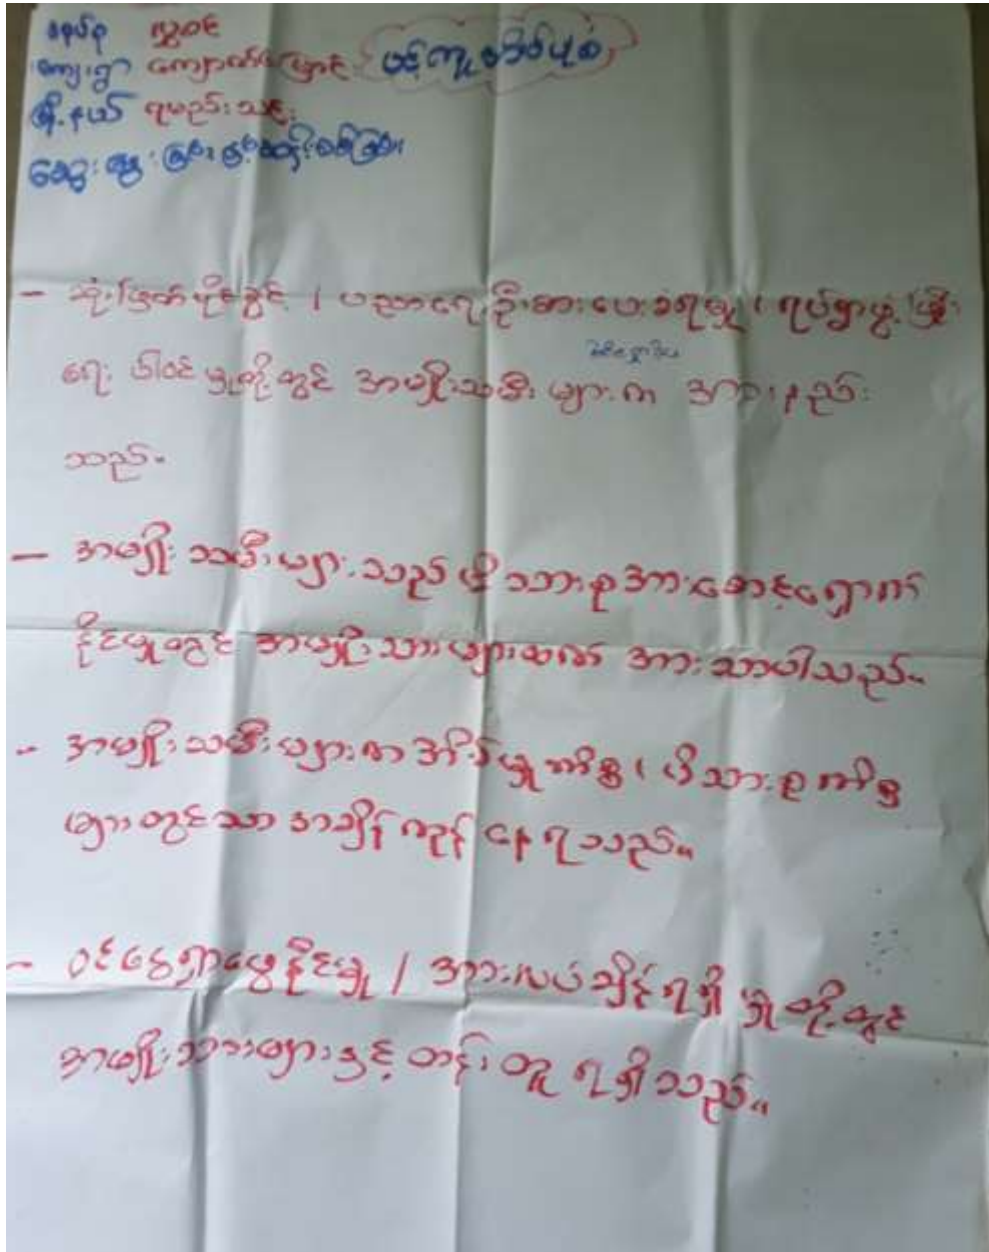 စုပ်စု လွှဝင်
ကျေးရွာ ကျောက်မြှောင် ပင့်ကူအိမ်ပုံစံ
မြို့နယ် ရမည်းသင်း
ဆွေးနွေးခြင်းနှင့်ဆန်းစစ်ခြင်း
- ဆုံးဖြတ်ပိုင်ခွင့် / ပညာရေးဦးစားပေးခံရမှု / ရပ်ရွာဖွံ့ဖြိုး
ရေး ပါဝင်မှုတို့တွင် အမျိုးသမီးများက အားနည်း
သည်။
- အမျိုးသမီးများသည် မိသားစုအားစောင့်ရှောက်
နိုင်မှုတွင် အမျိုးသားများထက် အားသာပါသည်။
- အမျိုးသမီးများက အိမ်မှုကိစ္စ / မိသားစုကိစ္စ
များတွင်သာ အချိန်ကုန်နေရသည်။
- ဝင်ငွေရှာဖွေနိုင်မှု / အားလပ်ချိန်ရရှိမှုတို့တွင်
အမျိုးသားများနှင့် တန်းတူ ရရှိသည်။